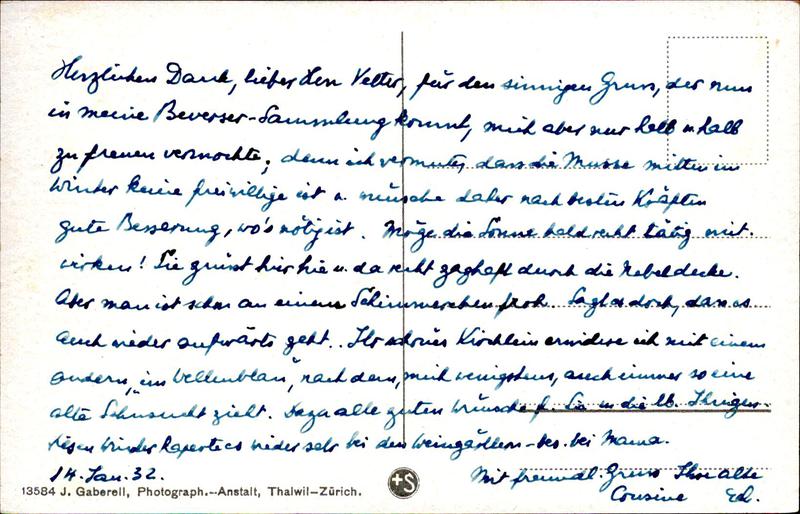 Herzlichen Dank, lieber Herr Vetter, für den sinnigen Gruss, der nun
in meine Beverser-Sammlung kommt, mich aber nur halb u. halb
zu freuen vermochte; denn ich vermute, dass die Musse mitten im
Winter keine freiwillige ist u. wünsche daher nach besten Kräften
gute Besserung, wo's nötig ist. Möge die Sonne bald recht tätig mit-
wirken! Sie grüsst hier hie u. da recht zaghaft durch die Nebeldecke.
Aber man ist schon an einem Schimmerchen froh. Sagt es doch, dass es
auch wieder aufwärts geht. Ihr schönes Kirchlein erwidere ich mit einem
andern, "im Wellenblau", nach dem, mich wenigstens, auch immer so eine
alte Sehnsucht zieht. Dazu alle guten Wünsche f. Sie u. die lb. Ihrigen.
wieder sehr bei den Weingärtlern - bes. bei Mama.
14. Jan. 32.
Mit freundl. Gruss Ihre alte
Cousine Ed.
13584 J. Gaberell, Photograph.-Anstalt, Thalwil-Zürich.
+S